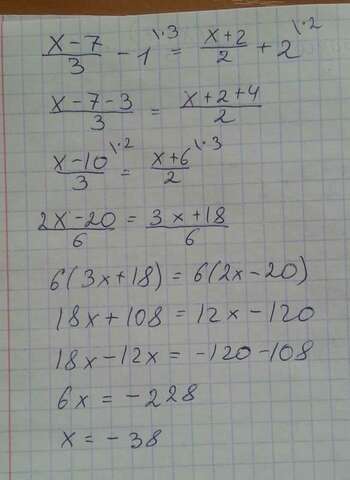 x-7/3 - 1\·3 = x+2/2 + 2\·2
x-7-3/3 = x+2+4/2
x-10/3\·2 = x+6/2\·3
2x-20/6 = 3x+18/6
6(3x+18) = 6(2x-20)
18x+108 = 12x-120
18x-12x = -120-108
6x = -228
x = -38